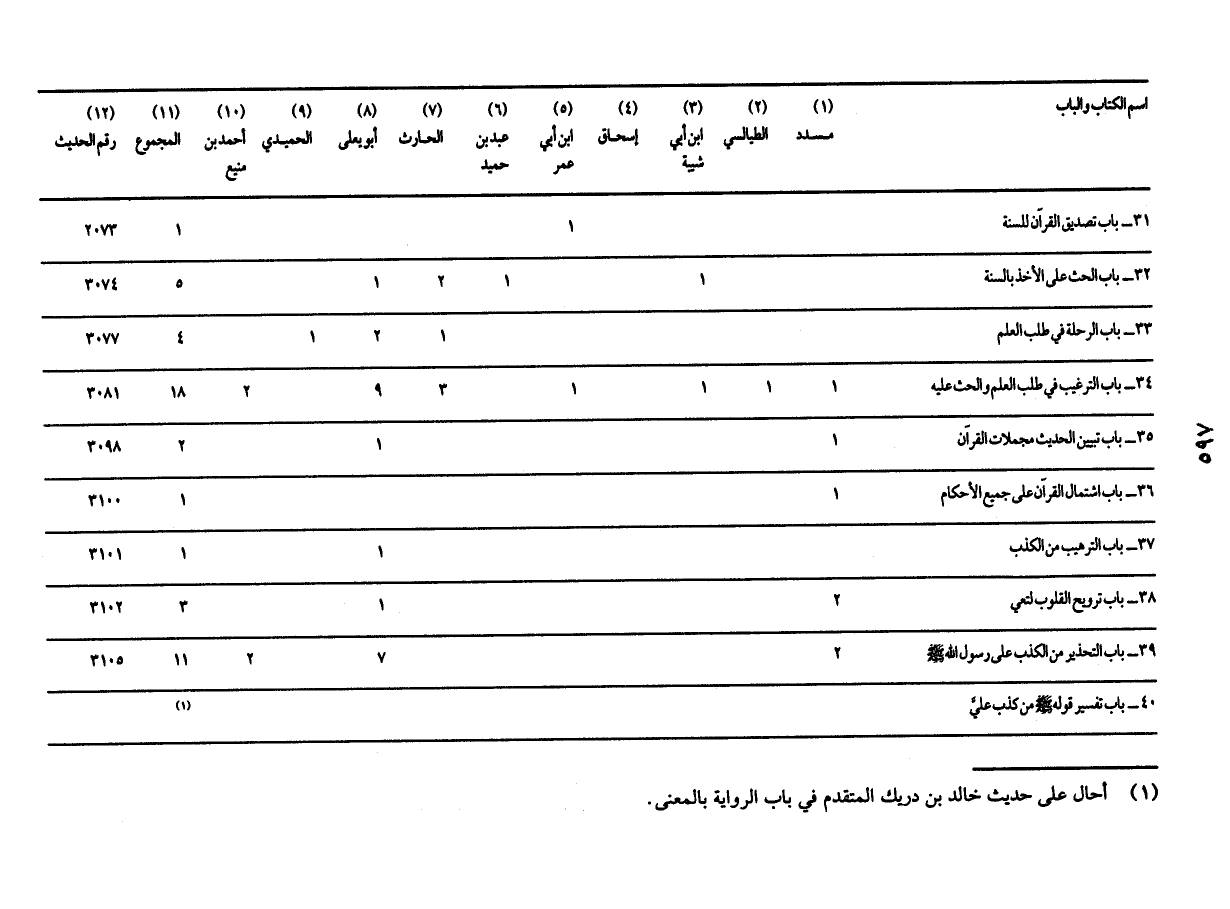 اسم الكتاب والباب (١) مسدد (٢) الطيالسي (٣) ابن أبي شيبة (٤) إسحاق (٥) ابن أبي عمر (٦) عبد بن حميد (٧) الحارث (٨) أبو يعلى (٩) الحميدي (١٠) أحمد بن منيع (١١) المجموع (١٢) رقم الحديث
٣١ ــ باب تصديق القرآن للسنة ١ ١ ٢٠٧٣
٣٢ ــ باب الحث على الأخذ بالسنة ١ ١ ٢ ١ ٥ ٣٠٧٤
٣٣ ــ باب الرحلة في طلب العلم ١ ٢ ١ ٤ ٣٠٧٧
٣٤ ــ باب الترغيب في طلب العلم والحث عليه ١ ١ ١ ١ ٣ ٩ ٢ ١٨ ٣٠٨١
٣٥ ــ باب تبيين الحديث مجملات القرآن ١ ١ ٢ ٣٠٩٨
٣٦ ــ باب اشتمال القرآن على جميع الأحكام ١ ١ ٣١٠٠
٣٧ ــ باب الترهيب من الكذب ١ ١ ٣١٠١
٣٨ ــ باب ترويح القلوب لتعي ٢ ١ ٣ ٣١٠٢
٣٩ ــ باب التحذير من الكذب على رسول الله ﷺ ٢ ٧ ٢ ١١ ٣١٠٥
٤٠ ــ باب تفسير قوله ﷺ من كذب عليَّ (١)
(١) أحال على حديث خالد بن دريك المتقدم في باب الرواية بالمعنى.
٥٩٧